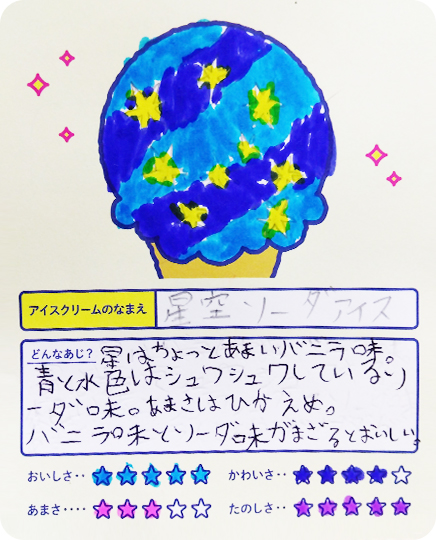 アイスクリームのなまえ 星空ソーダアイス
どんなあじ? 星はちょっとあまいバニラ味。
青と水色はシュワシュワしているソ
ーダ味。あまさはひかえめ。
バニラ味とソーダ味がまざるとおいしい。
おいしさ‥ ★★★★★ かわいさ‥ ★★★★☆
あまさ‥‥ ★★★☆☆ たのしさ‥ ★★★★★